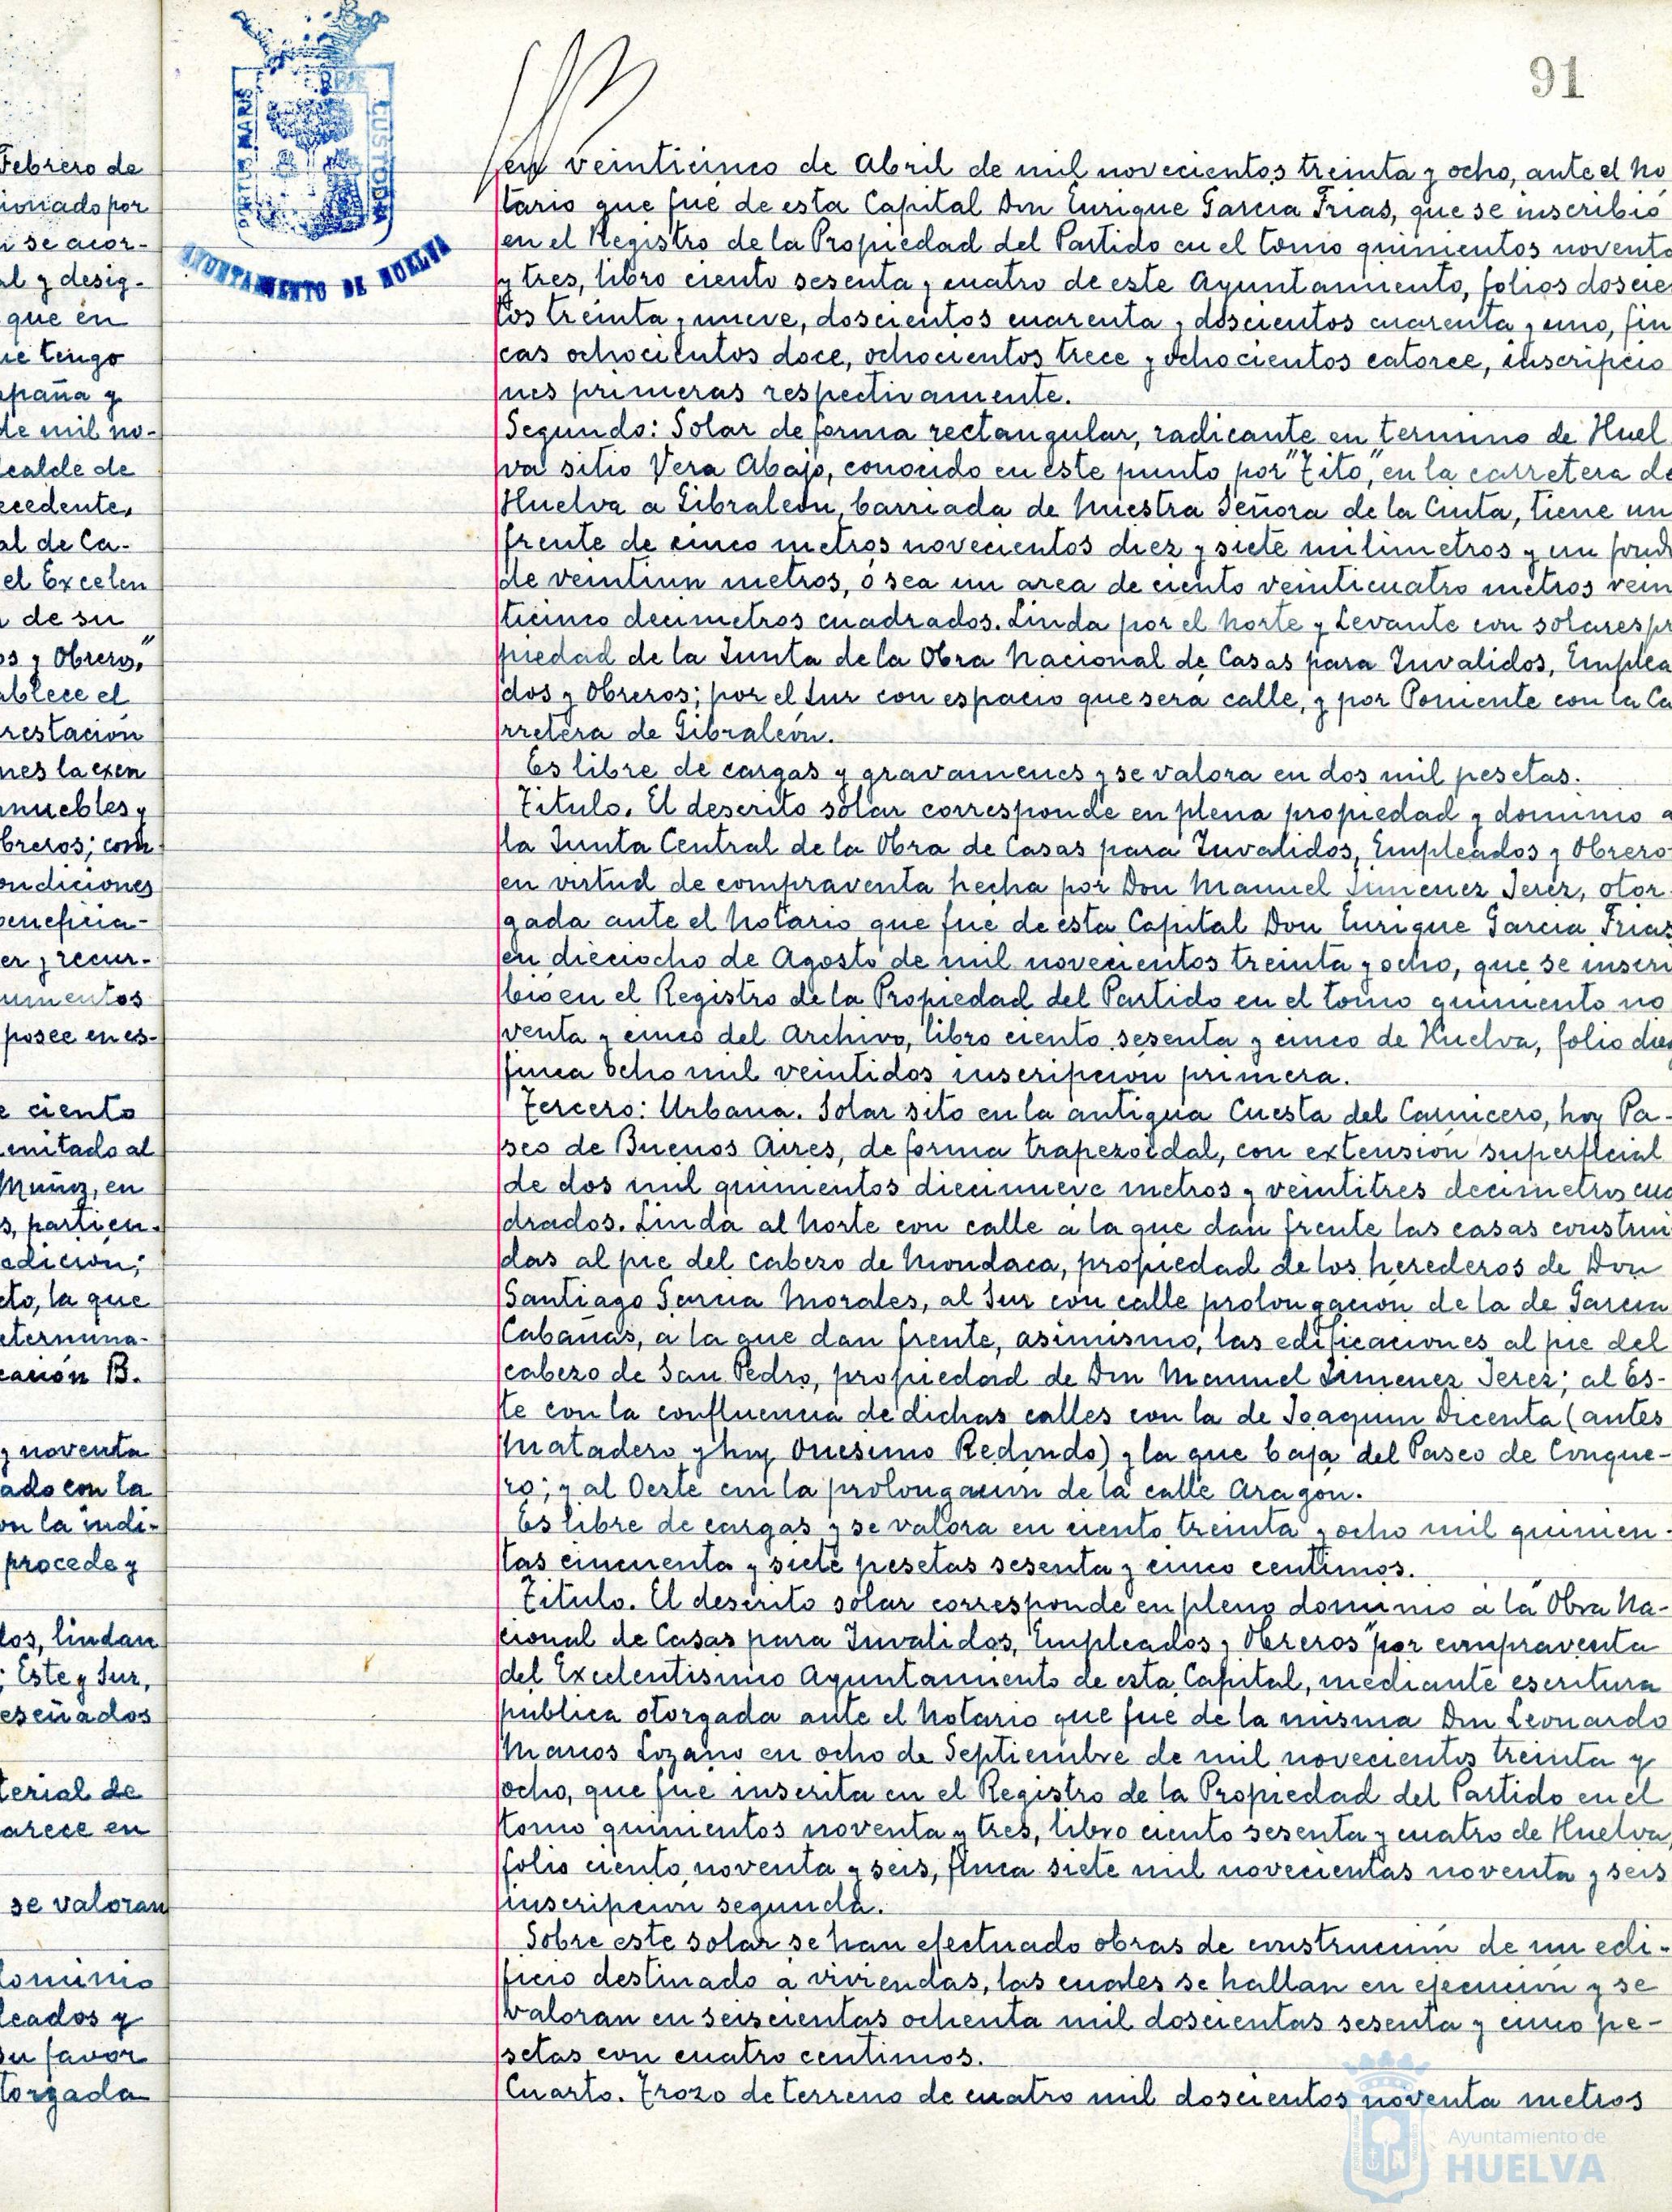 91
PORTUS MARIS
CUSTODIA
AYUNTAMIENTO DE HUELVA
Febrero de
ionado por
n se acor-
al y desig-
que en
ue tengo
spaña y
de mil no-
lcalde de
ecedente,
al de Ca-
el Excelen
n de su
os y Obreros,"
ablece el
restación
nes la exen
nmuebles y
breros; com
ondiciones
beneficia-
er y recur-
umentos
posee en es-
e ciento
enitado al
Muñoz, en
s, partien-
edición;
cto, la que
eternuna-
cación B.
y noventa
ado con la
on la indi-
procede y
dos, lindan
; Este y Sur,
eseñados
terial de
arece en
se valoran
dominio
leados y
su favor
torgada
en veinticinco de Abril de mil novecientos treinta y ocho, ante el No
tario que fué de esta Capital Don Enrique Garcia Frias, que se inscribió
en el Registro de la Propiedad del Partido en el tomo quinientos noventa
y tres, libro ciento sesenta y cuatro de este Ayuntamiento, folios doscien
tos treinta y nueve, doscientos cuarenta y doscientos cuarenta y uno, fin
cas ochocientos doce, ochocientos trece y ochocientos catorce, inscripcio
nes primeras respectivamente.
Segundo: Solar de forma rectangular, radicante en termino de Huel
va sitio Vera Abajo, conocido en este punto por "Tito," en la carretera de
Huelva a Gibraleón, barriada de Nuestra Señora de la Cinta, tiene un
frente de cinco metros novecientos diez y siete milimetros y un fondo
de veintiun metros, ó sea un area de ciento veinticuatro metros vein
ticinco decimetros cuadrados. Linda por el Norte y Levante con solares pr
piedad de la Junta de la Obra Nacional de Casas para Invalidos, Emplea
dos y Obreros; por el Sur con espacio que será calle, y por Poniente con la Ca
rretera de Gibraleón.
Es libre de cargas y gravamenes y se valora en dos mil pesetas.
Titulo. El descrito solar corresponde en plena propiedad y dominio a
la Junta Central de la Obra de Casas para Invalidos, Empleados y Obreros
en virtud de compraventa hecha por Don Manuel Jimenez Jerez, otor-
gada ante el Notario que fué de esta Capital Don Enrique Garcia Frias
en dieciocho de Agosto de mil novecientos treinta y ocho, que se inscri
bió en el Registro de la Propiedad del Partido en el tomo quiniento no
venta y cinco del Archivo, libro ciento sesenta y cinco de Huelva, folio diez
finca ocho mil veintidos inscripción primera.
Tercero: Urbana. Solar sito en la antigua Cuesta del Carnicero, hoy Pa-
seo de Buenos Aires, de forma trapezoidal, con extensión superficial
de dos mil quinientos diecinueve metros y veintitres decimetros cua
drados. Linda al Norte con calle a la que dan frente las casas construi
das al pie del cabezo de Mondaca, propiedad de los herederos de Don
Santiago Garcia Morales, al Sur con calle prolongación de la de Garcia
Cabañas, a la que dan frente, asimismo, las edificaciones al pie del
cabezo de San Pedro, propiedad de Don Manuel Jimenez Jerez; al Es-
te con la confluencia de dichas calles con la de Joaquin Dicenta (antes
Matadero y hoy Onesimo Redondo) y la que baja del Paseo de Conque-
ro; y al Oeste con la prolongación de la calle Aragón.
Es libre de cargas y se valora en ciento treinta y ocho mil quinien-
tas cincuenta y siete pesetas sesenta y cinco centimos.
Titulo. El descrito solar corresponde en pleno dominio a la "Obra Na-
cional de Casas para Invalidos, Empleados y Obreros" por compraventa
del Excelentisimo Ayuntamiento de esta Capital, mediante escritura
publica otorgada ante el Notario que fué de la misma Don Leonardo
Marcos Lozano en ocho de Septiembre de mil novecientos treinta y
ocho, que fué inscrita en el Registro de la Propiedad del Partido en el
tomo quinientos noventa y tres, libro ciento sesenta y cuatro de Huelva,
folio ciento noventa y seis, finca siete mil novecientas noventa y seis
inscripción segunda.
Sobre este solar se han efectuado obras de construcción de un edi-
ficio destinado a viviendas, las cuales se hallan en ejecución y se
valoran en seiscientas ochenta mil doscientas sesenta y cinco pe-
setas con cuatro centimos.
Cuarto. Trozo de terreno de cuatro mil doscientos noventa metros
Ayuntamiento de
HUELVA